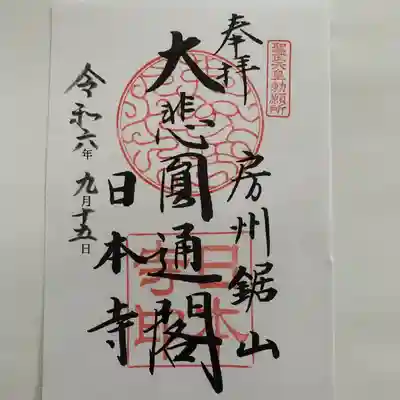 聖武天皇勅願所
奉拝
房州鋸山
大悲圓通閣
日本寺
令和六年九月十五日
日本寺印